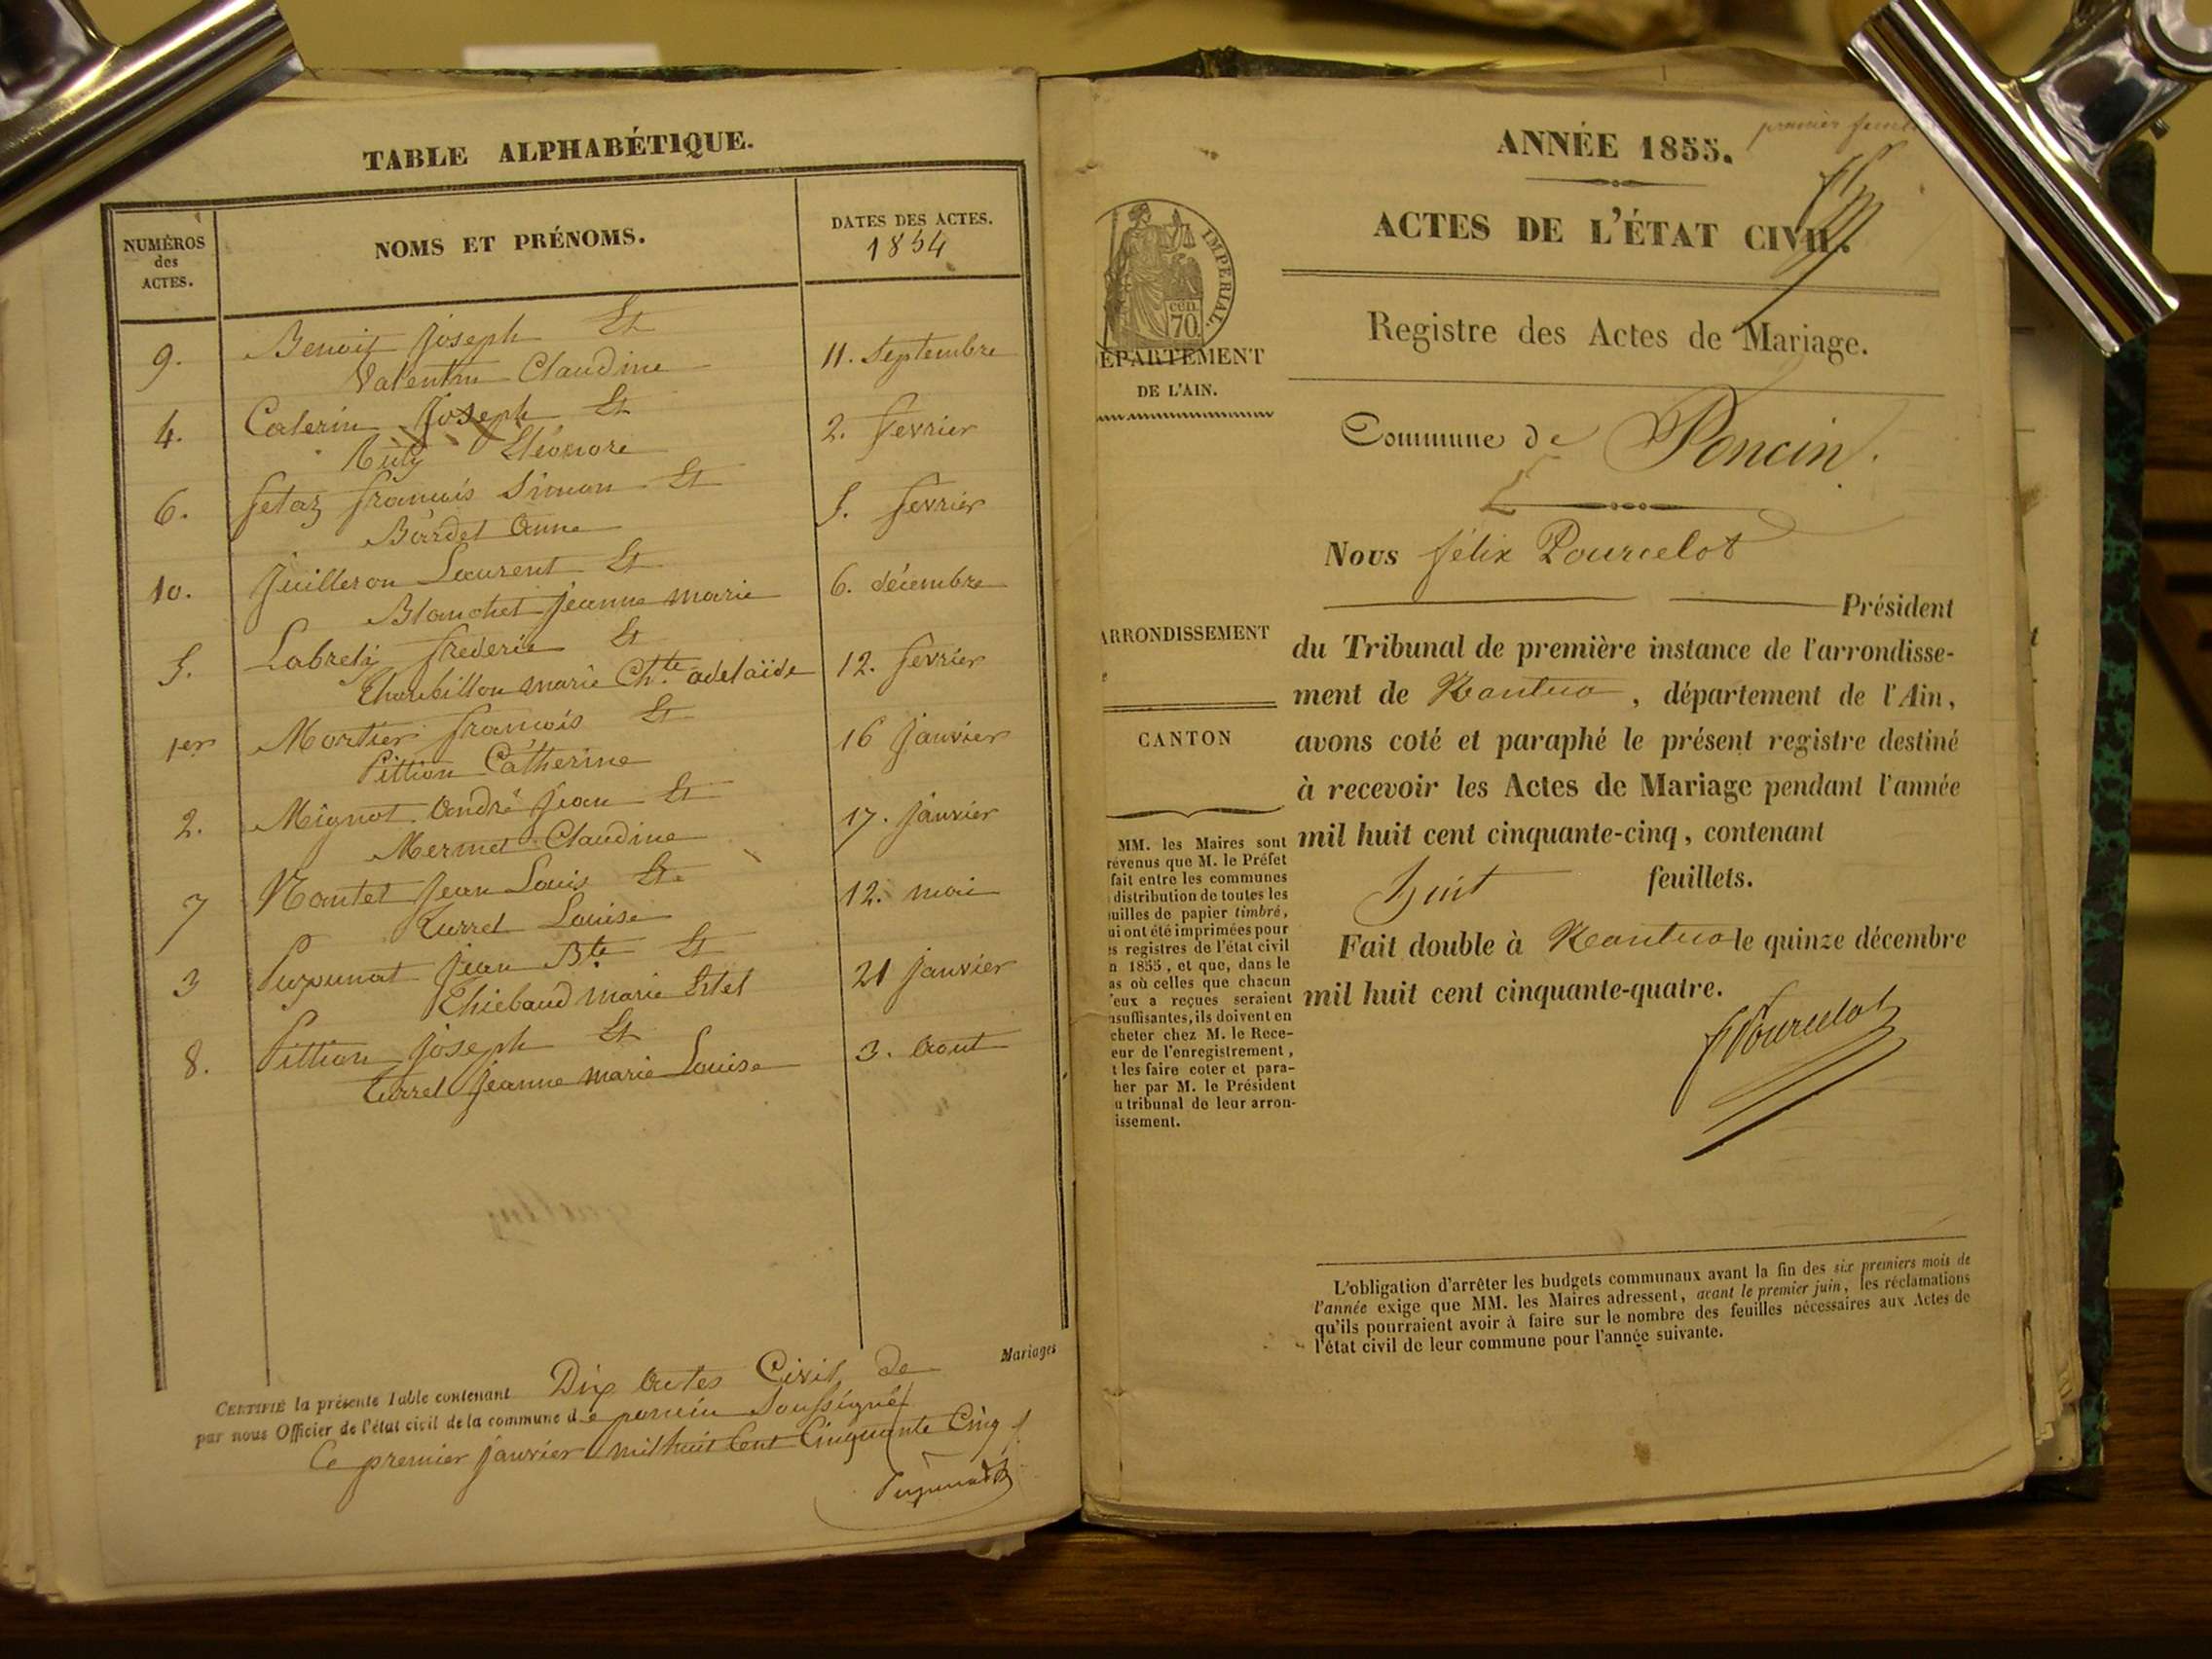 TABLE ALPHABÉTIQUE.
NUMÉROS
des
ACTES.
NOMS ET PRÉNOMS.
DATES DES ACTES.
1854
9. Benoit Joseph Et 11. Septembre
Valentin Claudine
4. Caterin Joseph Et 2. fevrier
Eléonore
6. fetaz francois Simon Et 5. fevrier
Bardet Anne
10. Juilleron Laurent Et 6. décembre
Blanchet Jeanne marie
5. Labrely frederic Et 12. fevrier
marie Chte adelaïde
1er Mortier francois Et 16 Janvier
Pittion Catherine
2. Mignot André Jean Et 17. Janvier
Mermet Claudine
7 Nantet Jean Louis Et 12. mai
Turrel Louise
3 Puzunat Jean Bte Et 21 Janvier
Thiebaud marie
8. Pittion Joseph Et 3. Aout
Turrel Jeanne marie Louise
Mariages
CERTIFIÉ la présente Table contenant Dix Actes Civil de
par nous Officier de l'état civil de la commune de poncin Soussigné
Ce premier Janvier mil huit Cent Cinquante Cinq
premier feuillet
ANNÉE 1855.
ACTES DE L'ÉTAT CIVIL.
IMPERIAL.
cen.
70
Registre des Actes de Mariage.
ÉPARTEMENT
DE L'AIN.
Commune de Poncin.
Nous félix Pourcelot
Président
ARRONDISSEMENT
du Tribunal de première instance de l'arrondisse-
ment de Nantua, département de l'Ain,
CANTON
avons coté et paraphé le présent registre destiné
à recevoir les Actes de Mariage pendant l'année
mil huit cent cinquante-cinq, contenant
huit feuillets.
Fait double à Nantua le quinze décembre
mil huit cent cinquante-quatre.
f Pourcelot
MM. les Maires sont
révenus que M. le Préfet
fait entre les communes
distribution de toutes les
uilles de papier timbré,
ui ont été imprimées pour
es registres de l'état civil
n 1855, et que, dans le
as où celles que chacun
'eux a reçues seraient
nsuffisantes, ils doivent en
cheter chez M. le Rece-
eur de l'enregistrement,
t les faire coter et para-
her par M. le Président
u tribunal de leur arron-
issement.
L'obligation d'arrêter les budgets communaux avant la fin des six premiers mois de
l'année exige que MM. les Maires adressent, avant le premier juin, les réclamations
qu'ils pourraient avoir à faire sur le nombre des feuilles nécessaires aux Actes de
l'état civil de leur commune pour l'année suivante.